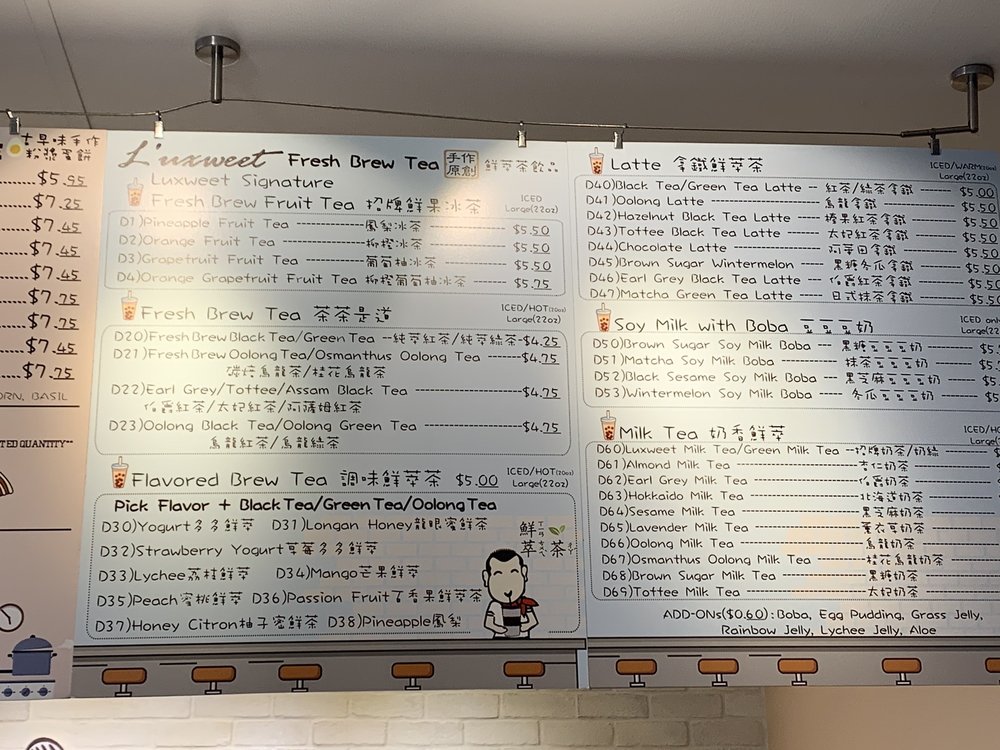 古早味手作
粉漿蛋餅
$5.95
$7.25
$7.45
$7.45
$7.45
$7.75
$7.75
$7.45
$7.75
ORN, BASIL
TED QUANTITY**
L'uxweet Fresh Brew Tea 手作原創 鮮萃茶飲品
Luxweet Signature
Fresh Brew Fruit Tea 招牌鮮果冰茶 ICED Large(22oz)
D1)Pineapple Fruit Tea 鳳梨冰茶 $5.50
D2)Orange Fruit Tea 柳橙冰茶 $5.50
D3)Grapefruit Fruit Tea 葡萄柚冰茶 $5.50
D4)Orange Grapefruit Fruit Tea 柳橙葡萄柚冰茶 $5.75
Fresh Brew Tea 茶茶是道 ICED/HOT(20oz) Large(22oz)
D20)Fresh Brew Black Tea/Green Tea --純萃紅茶/純萃綠茶-$4.25
D21)Fresh Brew Oolong Tea/Osmanthus Oolong Tea $4.75
碳焙烏龍茶/桂花烏龍茶
D22)Earl Grey/Toffee/Assam Black Tea $4.75
伯爵紅茶/太妃紅茶/阿薩姆紅茶
D23)Oolong Black Tea/Oolong Green Tea $4.75
烏龍紅茶/烏龍綠茶
Flavored Brew Tea 調味鮮萃茶 $5.00 ICED/HOT(20oz) Large(22oz)
Pick Flavor + Black Tea/Green Tea/Oolong Tea
D30)Yogurt多多鮮萃 D31)Longan Honey龍眼蜜鮮茶
D32)Strawberry Yogurt草莓多多鮮萃
D33)Lychee荔枝鮮萃 D34)Mango芒果鮮萃
D35)Peach蜜桃鮮萃 D36)Passion Fruit百香果鮮萃茶
D37)Honey Citron柚子蜜鮮茶 D38)Pineapple鳳梨
鮮萃茶
Latte 拿鐵鮮萃茶 ICED/WARM(20oz) Large(22oz)
D40)Black Tea/Green Tea Latte -- 紅茶/綠茶拿鐵 $5.00
D41)Oolong Latte 烏龍拿鐵 $5.50
D42)Hazelnut Black Tea Latte 榛果紅茶拿鐵 $5.50
D43)Toffee Black Tea Latte 太妃紅茶拿鐵 $5.50
D44)Chocolate Latte 阿華田拿鐵 $5.50
D45)Brown Sugar Wintermelon 黑糖冬瓜拿鐵 $5.50
D46)Earl Grey Black Tea Latte 伯爵紅茶拿鐵 $5.50
D47)Matcha Green Tea Latte 日式抹茶拿鐵 $5.50
Soy Milk with Boba 豆豆豆奶 ICED
Large(22
D50)Brown Sugar Soy Milk Boba -- 黑糖豆豆豆奶
D51)Matcha Soy Milk Boba 抹茶豆豆豆奶
D52)Black Sesame Soy Milk Boba -- 黑芝麻豆豆豆奶
D53)Wintermelon Soy Milk Boba -- 冬瓜豆豆豆奶
Milk Tea 奶香鮮萃 ICED/HO
Large(22
D60)Luxweet Milk Tea/Green Milk Tea --招牌奶茶/奶綠
D61)Almond Milk Tea 杏仁奶茶
D62)Earl Grey Milk Tea 伯爵奶茶
D63)Hokkaido Milk Tea 北海道奶茶
D64)Sesame Milk Tea 黑芝麻奶茶
D65)Lavender Milk Tea 薰衣草奶茶
D66)Oolong Milk Tea 烏龍奶茶
D67)Osmanthus Oolong Milk Tea 桂花烏龍奶茶
D68)Brown Sugar Milk Tea 黑糖奶茶
D69)Toffee Milk Tea 太妃奶茶
ADD-ONs($0.60): Boba, Egg Pudding, Grass Jelly,
Rainbow Jelly, Lychee Jelly, Aloe